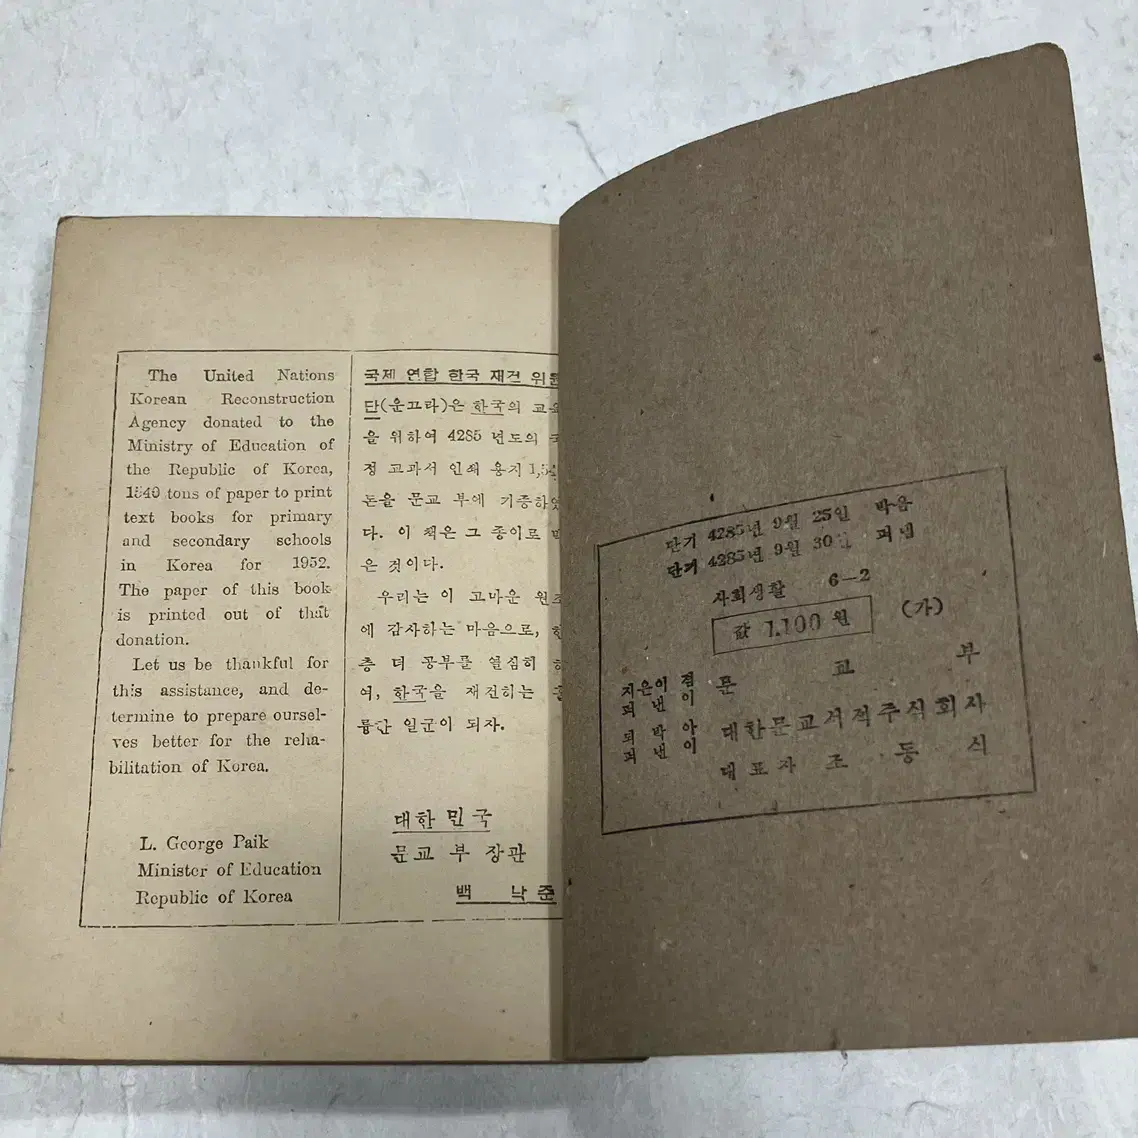 The United Nations
Korean Reconstruction
Agency donated to the
Ministry of Education of
the Republic of Korea,
1540 tons of paper to print
text books for primary
and secondary schools
in Korea for 1952.
The paper of this book
is printed out of that
donation.
Let us be thankful for
this assistance, and de-
termine to prepare oursel-
ves better for the reha-
bilitation of Korea.
L. George Paik
Minister of Education
Republic of Korea
국제 연합 한국 재건 위원
단(운끄라)은 한국의 교육
을 위하여 4285 년도의 국
정 교과서 인쇄 용지 1,54
톤을 문교 부에 기증하였
다. 이 책은 그 종이로 박
은 것이다.
우리는 이 고마운 원조
에 감사하는 마음으로, 한
층 더 공부를 열심히 하
여, 한국을 재건하는 훌
륭한 일군이 되자.
대한 민국
문교 부 장관
백 낙 준
단기 4285년 9월 25일 박음
단기 4285년 9월 30일 펴냄
사회생활 6-2
값 1,100 원 (가)
지은이 겸
펴낸이 문 교 부
되박아
펴낸이 대한문교서적주식회사
대표자 조 동 식